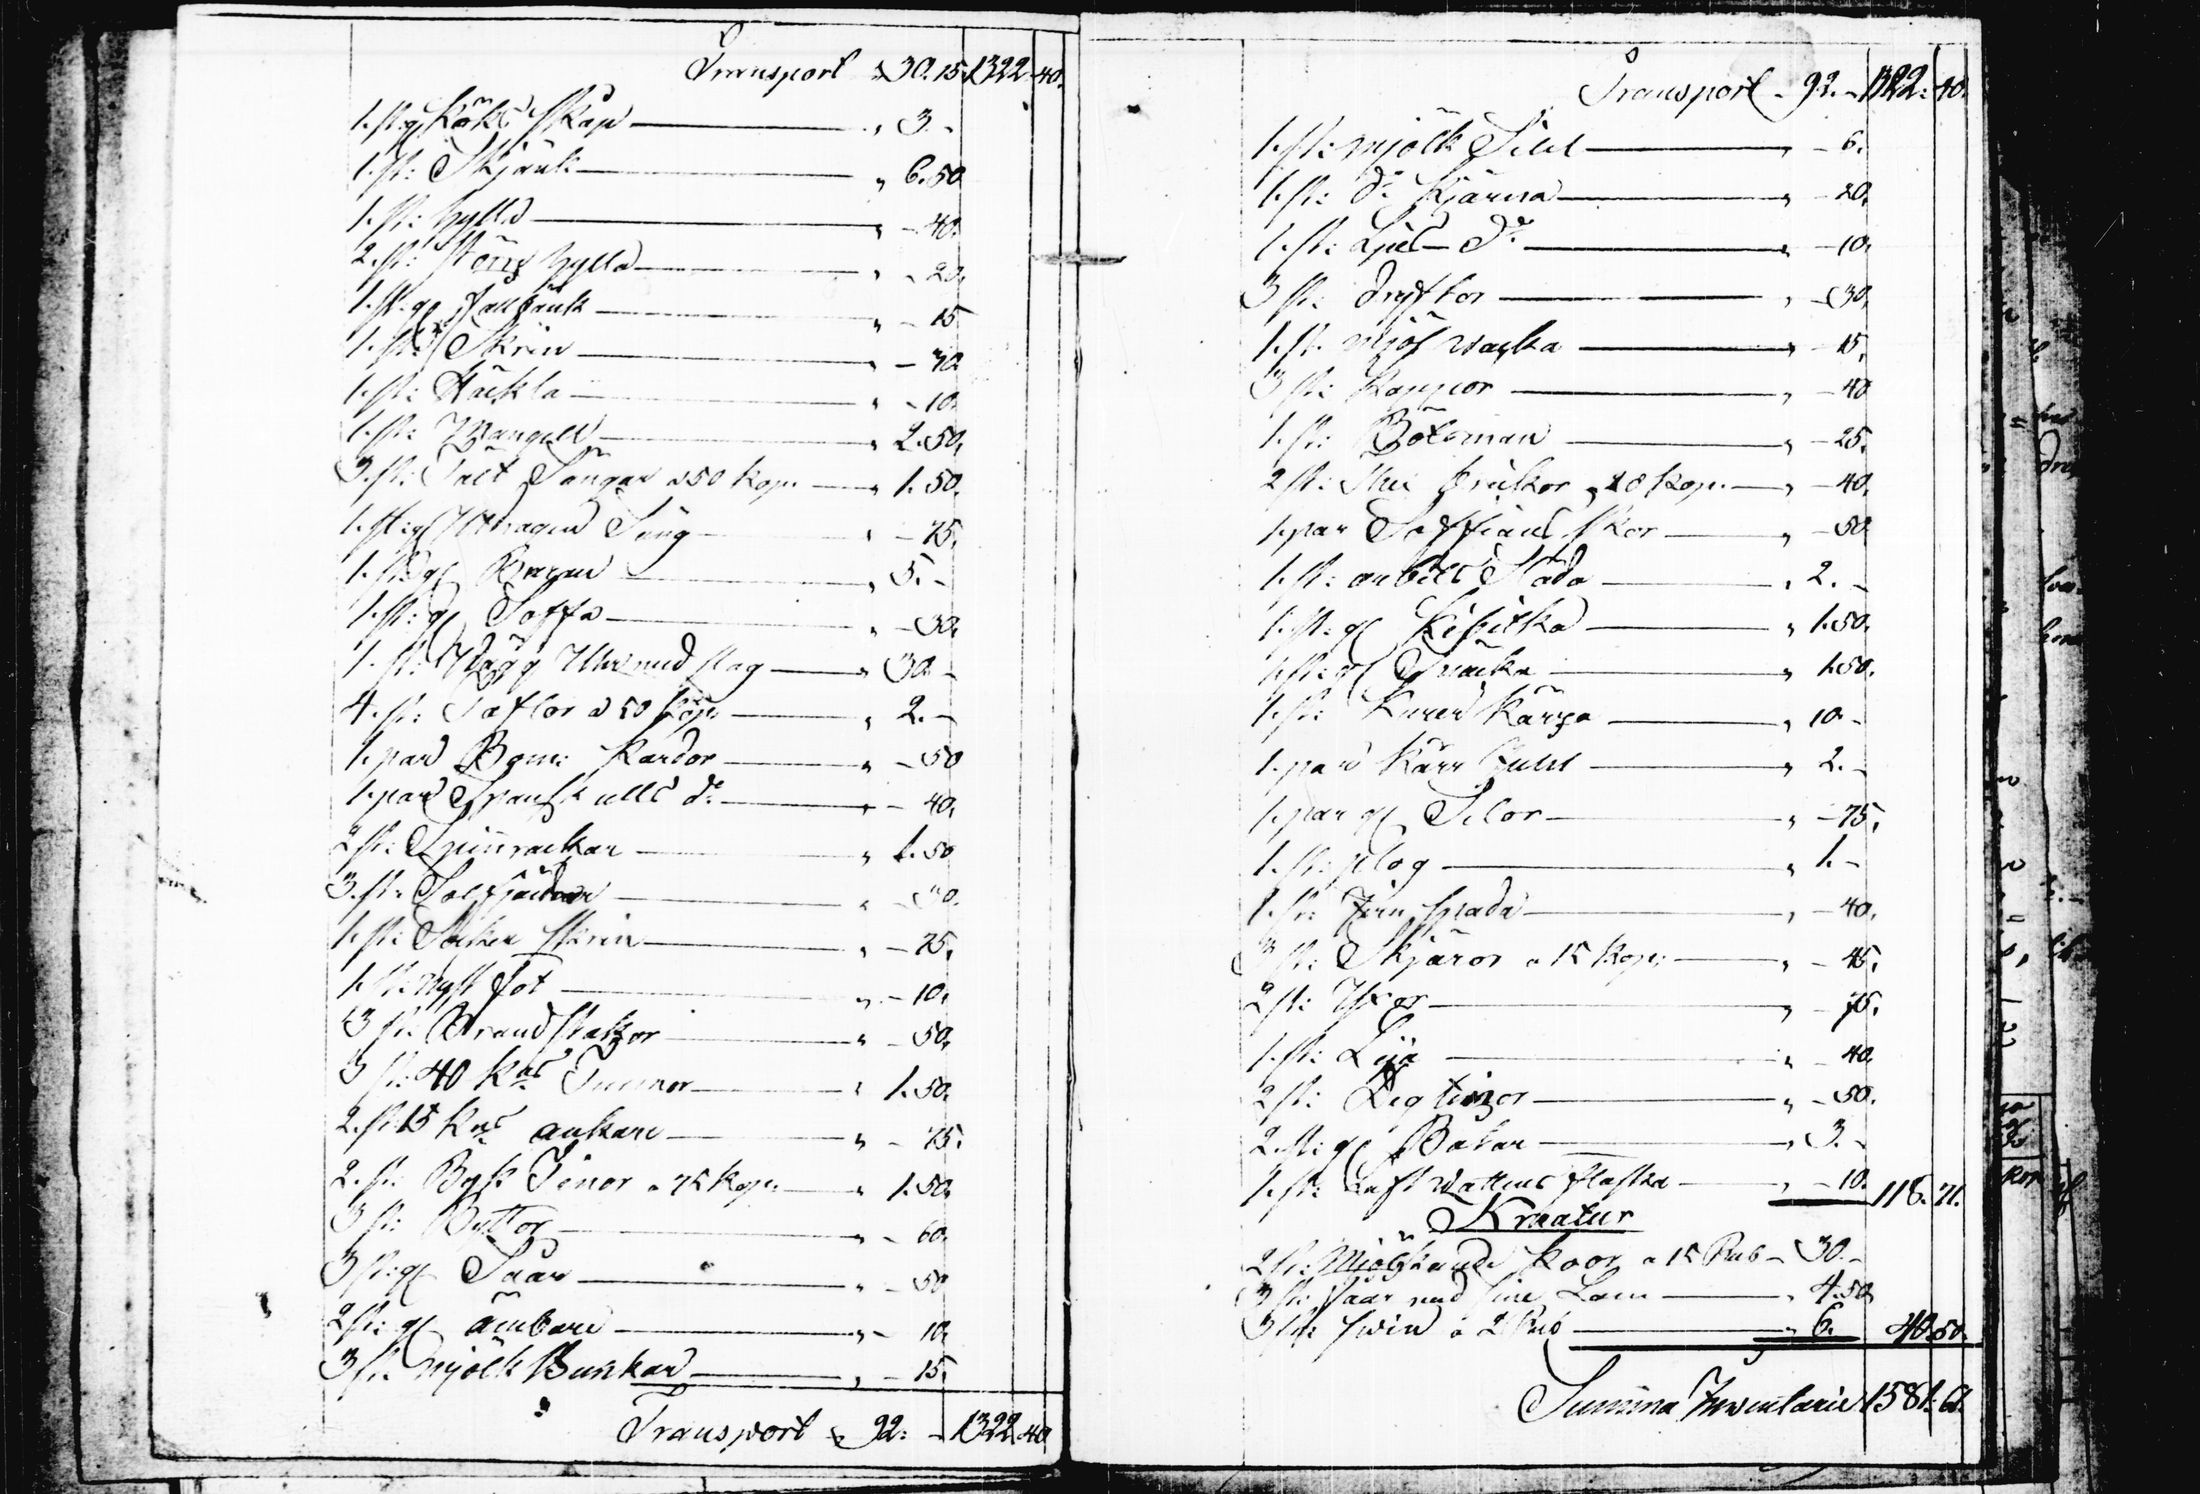 Transport „ 30. 15. 1322. 40.
1. st: gl Köks Skåp „ 3. -
1. st: Skjänk „ 6. 50
1. st: hylla „ - 40.
2. st: större hylla „ - 20.
1. st. gl fallbänk „ - 15
1. st: Skrin „ - 70
1. st: Häckla „ - 10.
1. st: Mangell „ 2. 50.
3. st: Tält Sängar a 50 kop: „ 1. 50.
1. st: gl Utdragen Säng „ - 75.
1. st: gl „ 5. -
1. st: gl Soffa „ - 30.
1. st: Wägg Uhr med slag „ 30. -
4. st: Taflor a 50 kop: „ 2. -
1. par Bom: Kardor „ - 50
1. par Spansk ulls do „ - 40.
2 st: Spinnrockar „ 1. 50
3. st: „ - 30.
1. st: Socker skrin „ - 75.
1. st: nyst fot „ - 10.
3 st: Brand stakar „ - 50.
3 st: 40 kns Tunnor „ 1. 50.
2. st 15 kns ankare „ - 75.
2. st: Byk Tinor a 75 kop: „ 1. 50.
3 st: Byttor „ - 60.
3 st: gl Såar „ - 50
2 st: gl ämbare „ - 10.
3 st: mjölk Bunkar „ - 15.
Transport „ 92: - 1322. 40
Transport „ 92. - 1322. 40.
1. st: mjölk Sihl „ - 6.
1. st: do Kjärna „ - 20.
1. st: Ljus do „ - 10.
3 st: dryftor „ - 30.
1. st. mjöl wacka „ - 15.
3 st: Kappor „ - 40
1. st: Bötsman „ - 25.
2 st: „ - 40.
1. par Saffians skor „ - 50
1. st: anbets Släda „ 2. -
1. st: gl Kibitka „ 1. 50.
1. st: gl „ 1. 50.
1. st: Kärra „ 10 -
1. par Kärr hjuhl „ 2. -
1. par gl Selor „ - 75.
1. st: plog „ 1. -
1. st: Jern spada „ - 40.
3 st: Skjäror a 15 kop: „ - 45.
2 st: Yxor „ - 75.
1. st: Lija „ - 40.
2 st: Deg tinor „ - 50.
2. st: gl Båtar „ 3. -
1. st: Luft wattens flaska „ - 10. 118. 71.
Kreatur
2 st: mjölkande koor a 15 Rub - 30. -
3 st: får med sine Lam „ 4. 50
3 st: swin a 2 Rub „ 6. 40. 50.
Summa Inventarie 1581: 61.